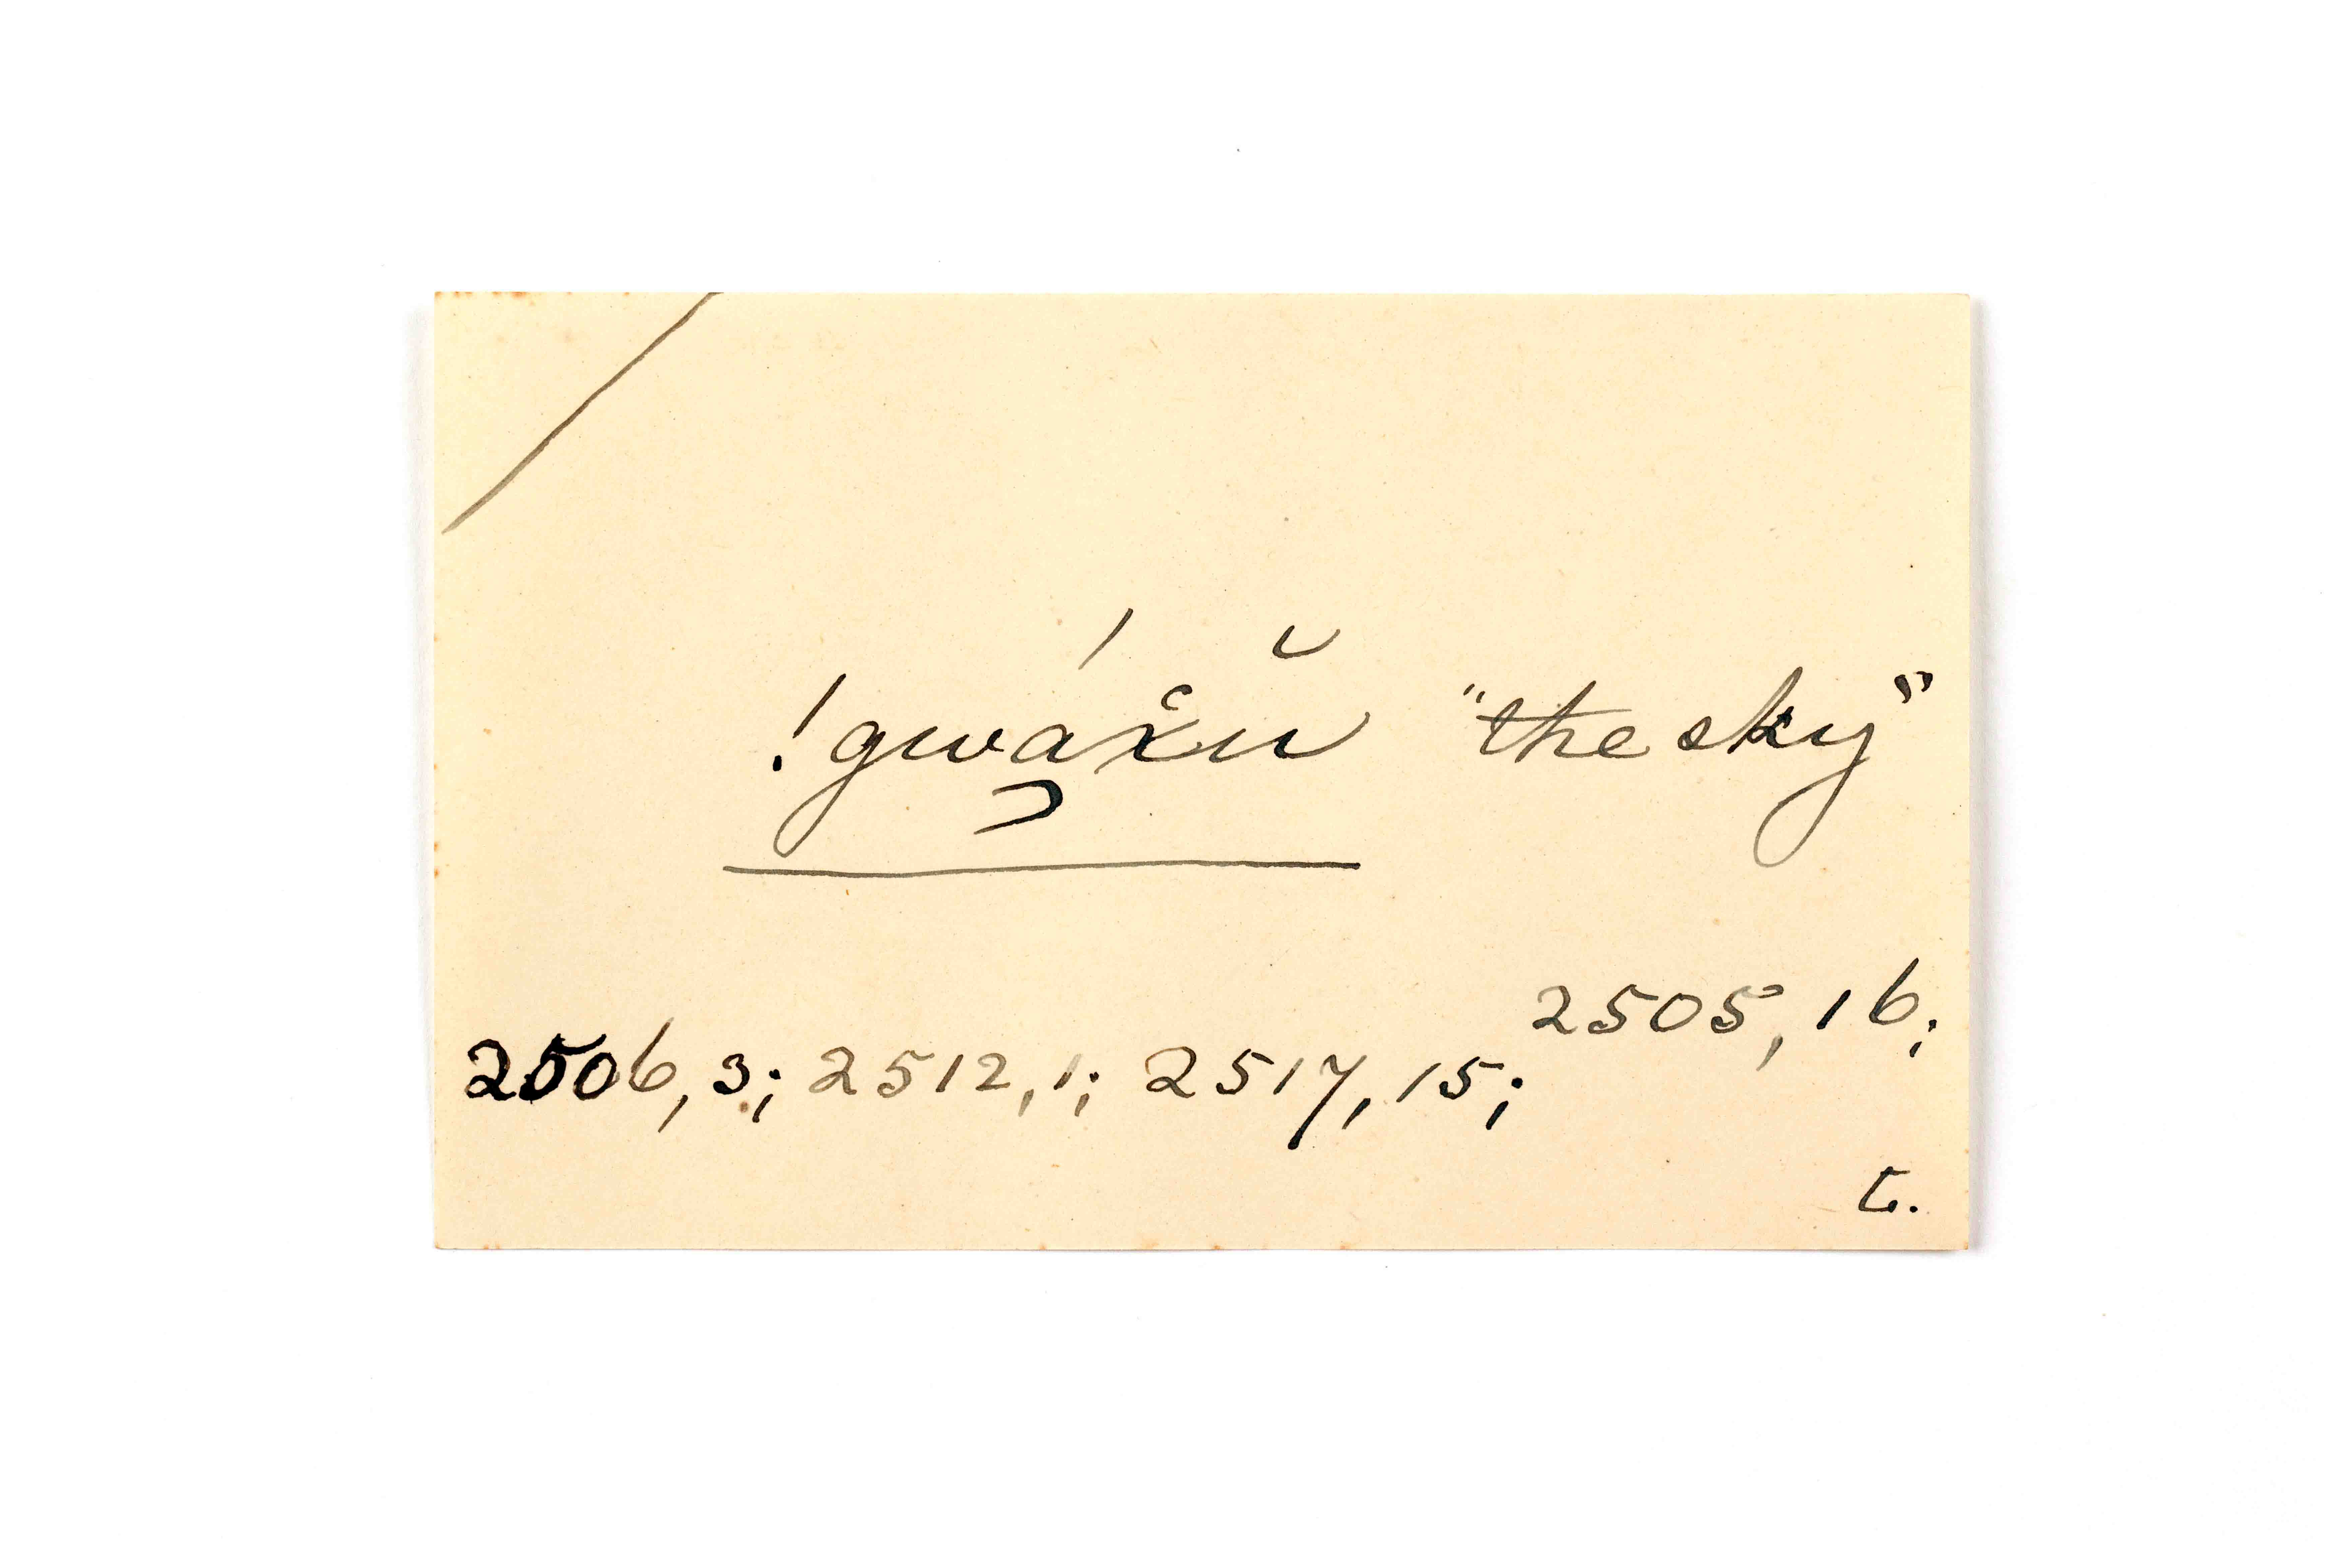 !gwa̦͗́x̔ŭ "the sky"
2505, 16;
2506, 3; 2512, 1; 2517, 15;
L.